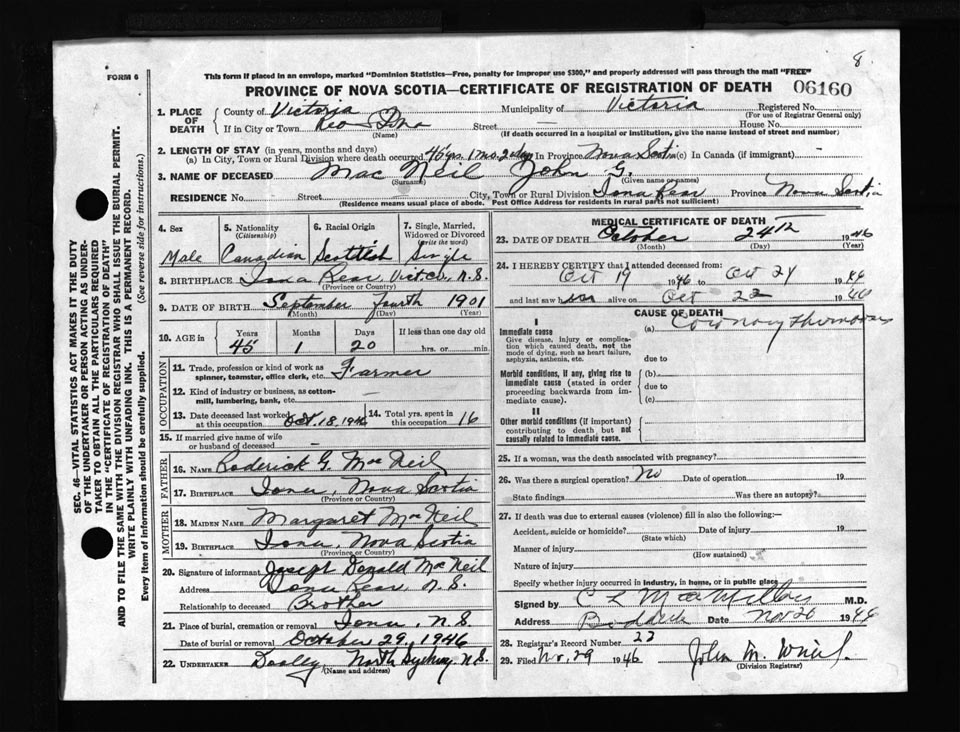 8
FORM 6
This form if placed in an envelope, marked "Dominion Statistics—Free, penalty for improper use $300," and properly addressed will pass through the mail "FREE"
PROVINCE OF NOVA SCOTIA—CERTIFICATE OF REGISTRATION OF DEATH 06160
SEC. 46—VITAL STATISTICS ACT MAKES IT THE DUTY
OF THE UNDERTAKER OR PERSON ACTING AS UNDER-
TAKER TO OBTAIN ALL THE PARTICULARS REQUIRED
IN THE "CERTIFICATE OF REGISTRATION OF DEATH"
AND TO FILE THE SAME WITH THE DIVISION REGISTRAR WHO SHALL ISSUE THE BURIAL PERMIT.
WRITE PLAINLY WITH UNFADING INK. THIS IS A PERMANENT RECORD.
Every item of information should be carefully supplied. (See reverse side for instructions.)
1. PLACE OF DEATH
County of Victoria Municipality of Victoria Registered No.
(For use of Registrar General only)
If in City or Town Iona Street House No.
(Name) (If death occurred in a hospital or institution, give the name instead of street and number)
2. LENGTH OF STAY (in years, months and days)
(a) In City, Town or Rural Division where death occurred 45 yrs. 1 mo. 20 days In Province Nova Scotia (c) In Canada (if immigrant) —
3. NAME OF DECEASED Mac Neil John G.
(Surname) (Given name or names)
RESIDENCE No. Street City, Town or Rural Division Iona Rear Province Nova Scotia
(Residence means usual place of abode. Post Office Address for residents in rural parts not sufficient)
4. Sex
Male
5. Nationality
(Citizenship)
Canadian
6. Racial Origin
Scottish
7. Single, Married,
Widowed or Divorced
(write the word)
Single
8. BIRTHPLACE Iona Rear, Vict Co, N.S.
(Province or Country)
9. DATE OF BIRTH September fourth 1901
(Month) (Day) (Year)
10. AGE in Years Months Days If less than one day old
45 1 20 hrs. or min.
OCCUPATION
11. Trade, profession or kind of work as Farmer
spinner, teamster, office clerk, etc.
12. Kind of industry or business, as cotton-
mill, lumbering, bank, etc.
13. Date deceased last worked
at this occupation Oct. 18, 1946
14. Total yrs. spent in
this occupation 16
15. If married give name of wife
or husband of deceased —
FATHER
16. NAME Roderick G. Mac Neil
17. BIRTHPLACE Iona, Nova Scotia
(Province or Country)
MOTHER
18. MAIDEN NAME Margaret McNeil
19. BIRTHPLACE Iona, Nova Scotia
(Province or Country)
20. Signature of informant Joseph Donald McNeil
Address Iona Rear, N.S.
Relationship to deceased Brother
21. Place of burial, cremation or removal Iona, N.S
Date of burial or removal October 29, 1946
22. UNDERTAKER Dooley, North Sydney, N.S.
(Name and address)
MEDICAL CERTIFICATE OF DEATH
23. DATE OF DEATH October 24th 1946
(Month) (Day) (Year)
24. I HEREBY CERTIFY that I attended deceased from:
Oct 19 1946 to Oct 24 1946
and last saw him alive on Oct 23 1946
CAUSE OF DEATH
I
Immediate cause
Give disease, injury or complica-
tion which caused death, not the
mode of dying, such as heart failure,
asphyxia, asthenia, etc.
(a) Coronary Thrombosis
due to
Morbid conditions, if any, giving rise to
immediate cause (stated in order
proceeding backwards from im-
mediate cause).
(b)
due to
(c)
II
Other morbid conditions (if important)
contributing to death but not
causally related to immediate cause.
25. If a woman, was the death associated with pregnancy?
26. Was there a surgical operation? No Date of operation 19
State findings Was there an autopsy?
27. If death was due to external causes (violence) fill in also the following:—
Accident, suicide or homicide? Date of injury 19
(State which)
Manner of injury
(How sustained)
Nature of injury
Specify whether injury occurred in industry, in home, or in public place
Signed by C L MacMillan M.D.
Address Baddeck Date Nov 20 1946
28. Registrar's Record Number 22
29. Filed Nv. 29 1946 John M. McNeil
(Division Registrar)